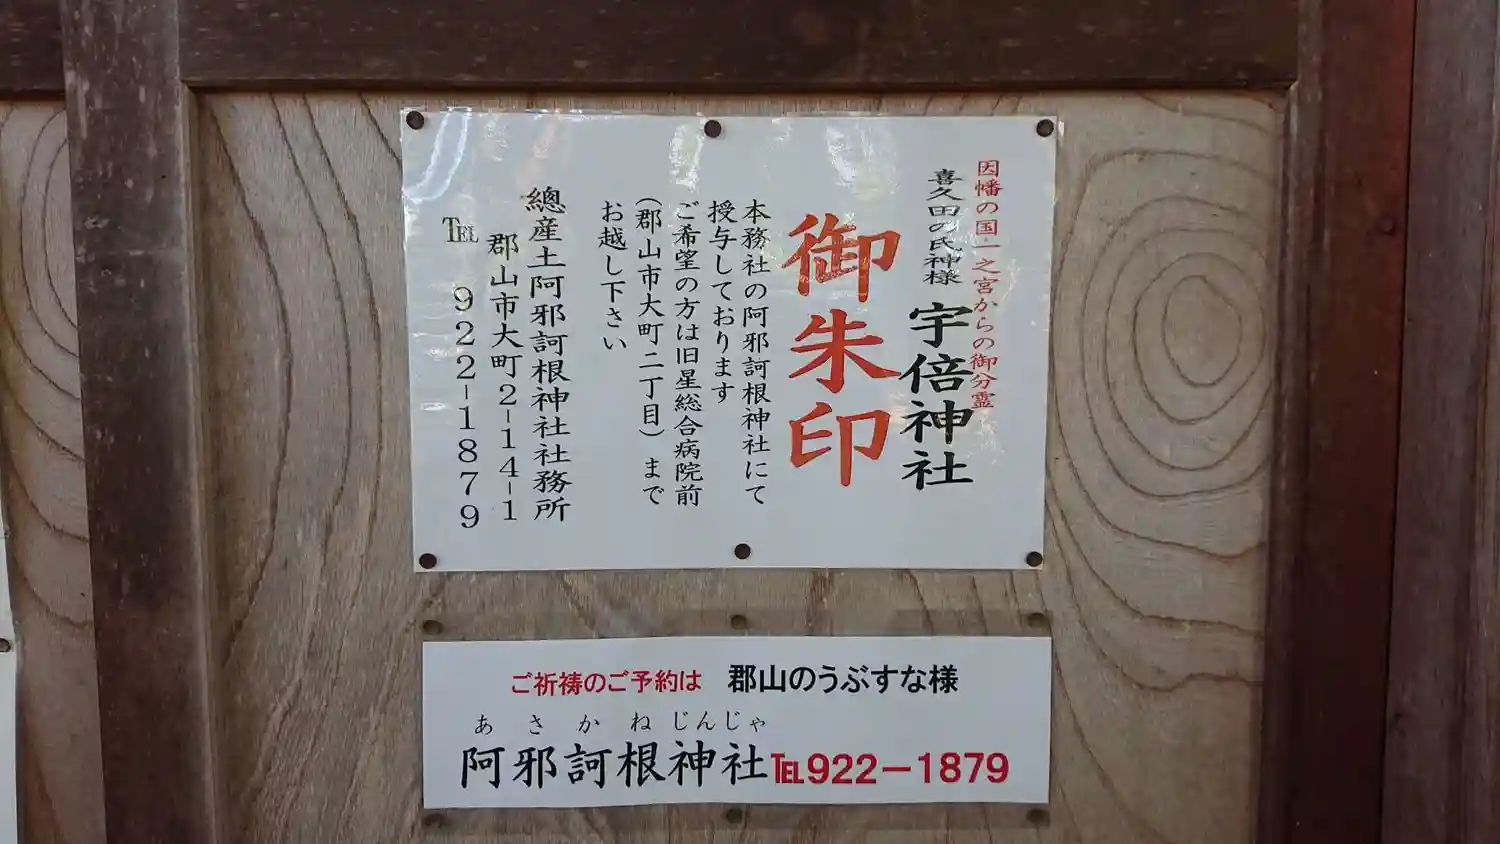 因幡の国一之宮からの御分霊
喜久田の氏神様 宇倍神社
御朱印
本務社の阿邪訶根神社にて
授与しております
ご希望の方は旧星総合病院前
（郡山市大町二丁目）まで
お越し下さい
總産土阿邪訶根神社社務所
郡山市大町2-14-1
℡ 922-1879
ご祈祷のご予約は 郡山のうぶすな様
あさかねじんじゃ
阿邪訶根神社℡922－1879